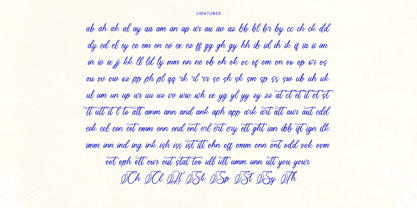 LIGATURES
ab ah ak al ay aa am an ap ar au av az bb bl br by cc ch ck dd
dy ed el ey ee em en er ex ez ff gg gh gy hh ib id ih ik if ia ii im
in iv ie jj kk ll ld ly mm nn ne ob oh ok oc of om on oo op or os
ou ov ow oz pp ph pl qq rk rl rr se sh sk sm sp ss sw ub uh uk
ul um un up ur uu uz vv wv wh xx yg yl yy zy zz at ct et it ot st
tt utt it t to alt amm ann and ank aph app ark art att aur aut edd
eak eel ean ent emm enn end ent erl ert ery ett ght ian ibb ift ign ilk
imm inn ind ing ink ish iss ist itt ohn off omm onn ont odd ook oom
oot oph ott our out stat too ull ult umm unn utt you your
Ch Cl H Sk Sp St Sy Th